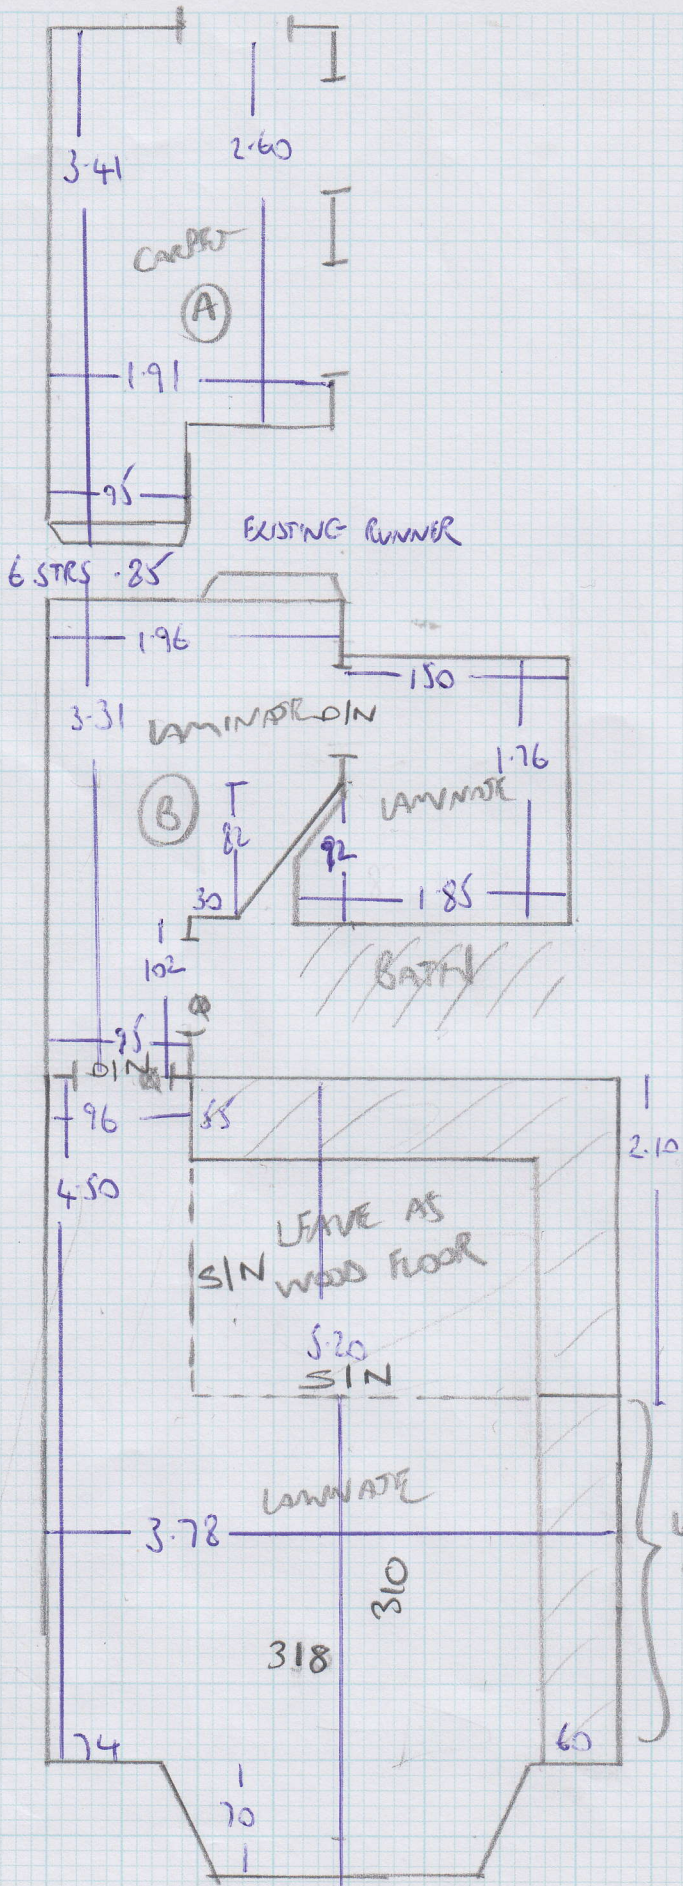 3.41
2.60
CARPET
A
1.91
.95
EXISTING RUNNER
6 STRS .85
1.96
150
3.31
LAMINATE D/N
1.76
B
LAMINATE
82
92
30
1.85
102
BATH
.95
D/N
96
55
2.10
4.50
LEAVE AS
WOOD FLOOR
S/N
5.20
S/N
LAMINATE
3.78
310
318
74
60
70